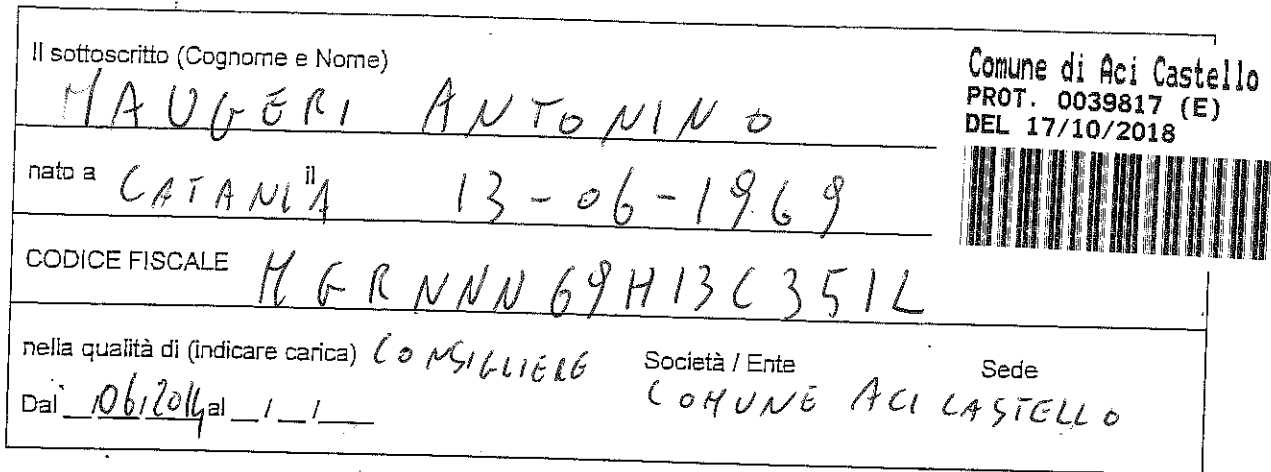 Il sottoscritto (Cognome e Nome)
MAUGERI ANTONINO
Comune di Aci Castello
PROT. 0039817 (E)
DEL 17/10/2018
nato a CATANIA il 13-06-1969
CODICE FISCALE MGRNNN69H13C351L
nella qualità di (indicare carica) CONSIGLIERE Società / Ente Sede
Dal __/06/2014 al __/__/____ COMUNE ACI CASTELLO